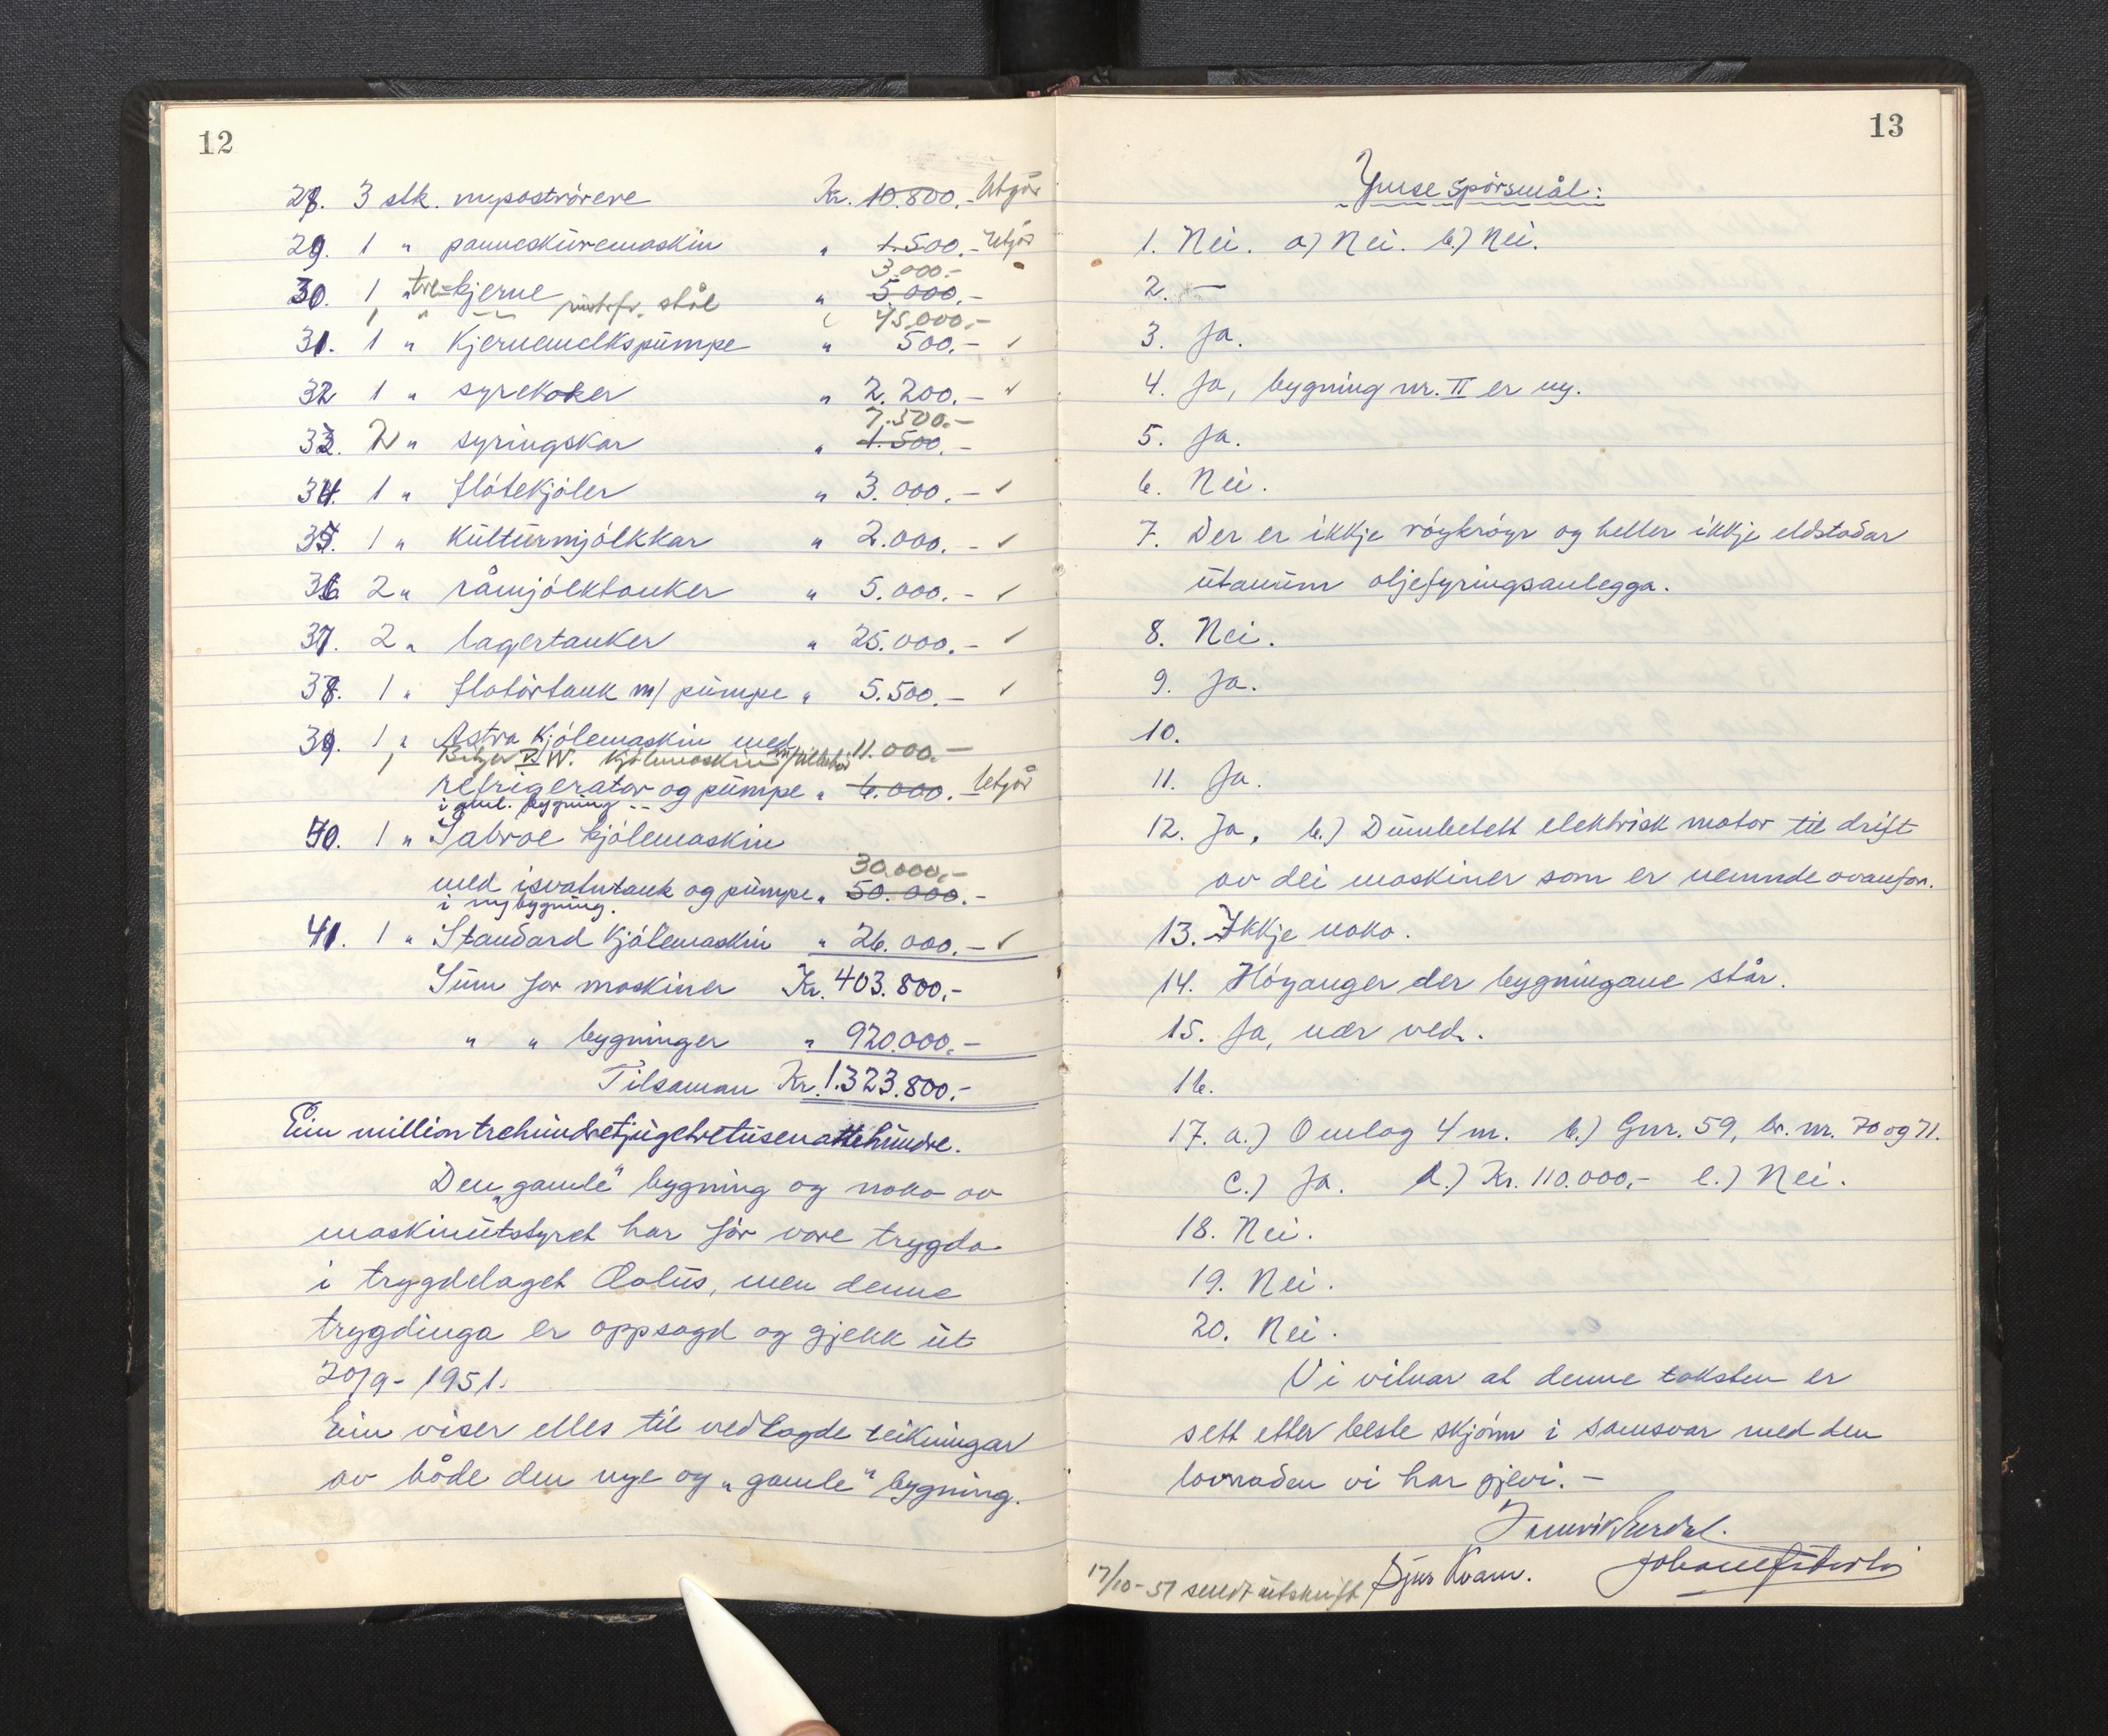 12
28. 3 stk. mysostrørere Kr. 10.800.- Utgår
29. 1 " panneskuremaskin " 1.500.- Utgår
3.000.-
30. 1 " tre-kjerne " 5.000.-
1 " -"- rustfr. stål " 45.000.-
31. 1 " Kjernemelkspumpe " 500.- ✓
32 1 " syrekoker " 2.200.- ✓
7.500.-
33. 2 " syringskar " 1.500.-
34. 1 " fløtekjøler " 3.000.- ✓
35. 1 " Kulturmjølkkar " 2.000.- ✓
36. 2 " råmjølktanker " 5.000.- ✓
37. 2 " lagertanker " 25.000.- ✓
38. 1 " flotørtank m/ pumpe " 5.500.- ✓
39. 1 " Astra Kjølemaskin med
1 kjølemaskin m/tilbehør 11.000.-
refrigerator og pumpe " 6.000.- Utgår
i gml. bygning --
40. 1 " Sabroe kjølemaskin
30.000.-
med isvatntank og pumpe " 50.000.-
i nybygning.
41. 1 " Standard Kjølemaskin " 26.000.- ✓
Sum for maskiner Kr. 403.800,-
" " bygninger " 920.000,-
Tilsaman Kr. 1.323.800,-
Ein million trehundretjugetretusenattehundre.
Den "gamle" bygning og noko av
maskinutstyret har før vore trygda
i trygdelaget Æolus, men denne
trygdinga er oppsagd og gjekk ut
20/9-1951.
Ein viser elles til vedlagde teikningar
av både den nye og "gamle" bygning.
13
Ymse spørsmål:
1. Nei. a) Nei. b.) Nei.
2. —
3. Ja.
4. Ja, bygning nr. II er ny.
5. Ja.
6. Nei.
7. Der er ikkje røykrøyr og heller ikkje eldstadar
utanum oljefyringsanlegga.
8. Nei.
9. Ja.
10.
11. Ja.
12. Ja, b.) Dúmbetett elektrisk motor til drift
av dei maskiner som er nemnde ovanfor.
13. Ikkje noko.
14. Høyanger der bygningane står.
15. Ja, nær ved.
16.
17. a.) Omlag 4 m. b.) Gnr. 59, br. nr. 70 og 71.
c.) Ja. d.) Kr. 110.000,- e.) Nei.
18. Nei.
19. Nei.
20. Nei.
Vi vitnar at denne taksten er
sett etter beste skjønn i samsvar med den
lovnaden vi har gjevi. -
17/10-51 sendt utskrift Sjur Kvam.